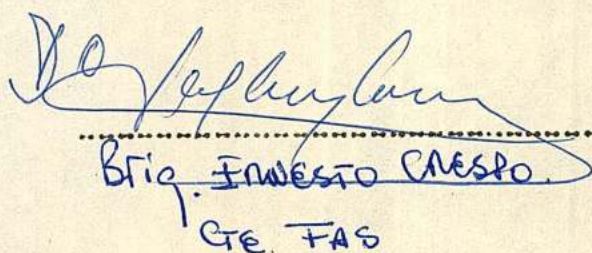 Brig. ERNESTO CRESPO.
CTE. FAS